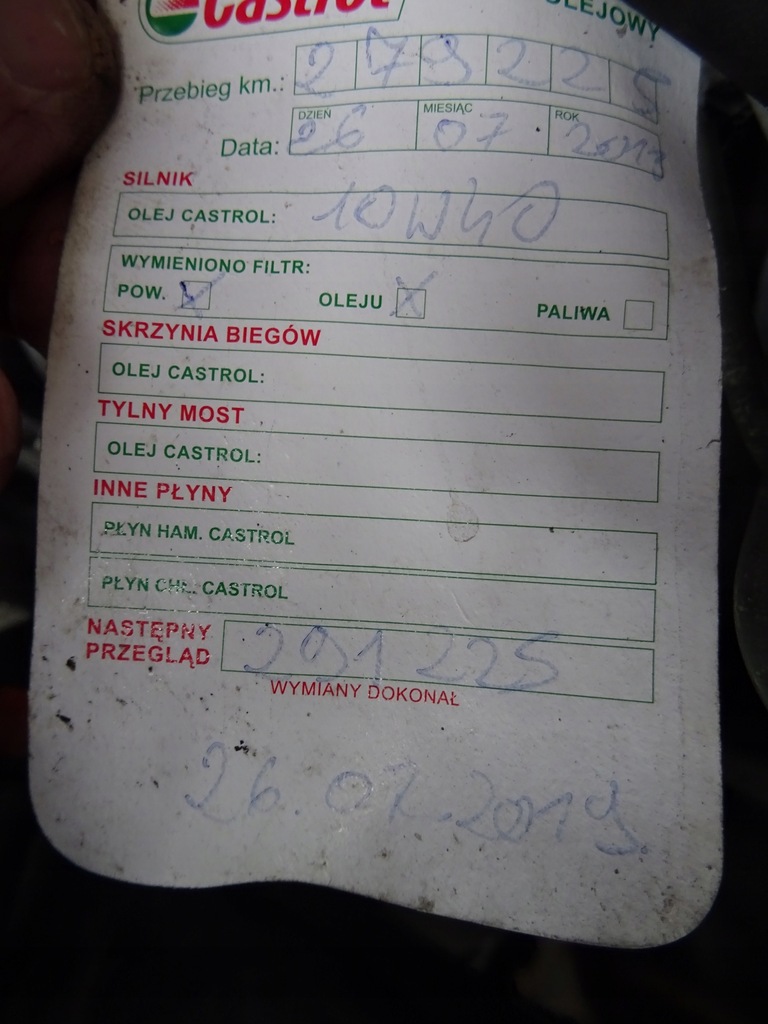 Castrol OLEJOWY
Przebieg km.: 279225
DZIEŃ MIESIĄC ROK
Data: 26 07 2019
SILNIK
OLEJ CASTROL: 10W40
WYMIENIONO FILTR:
POW. OLEJU PALIWA
SKRZYNIA BIEGÓW
OLEJ CASTROL:
TYLNY MOST
OLEJ CASTROL:
INNE PŁYNY
PŁYN HAM. CASTROL
PŁYN CHŁ. CASTROL
NASTĘPNY
PRZEGLĄD 291 225
WYMIANY DOKONAŁ
26.07.2019